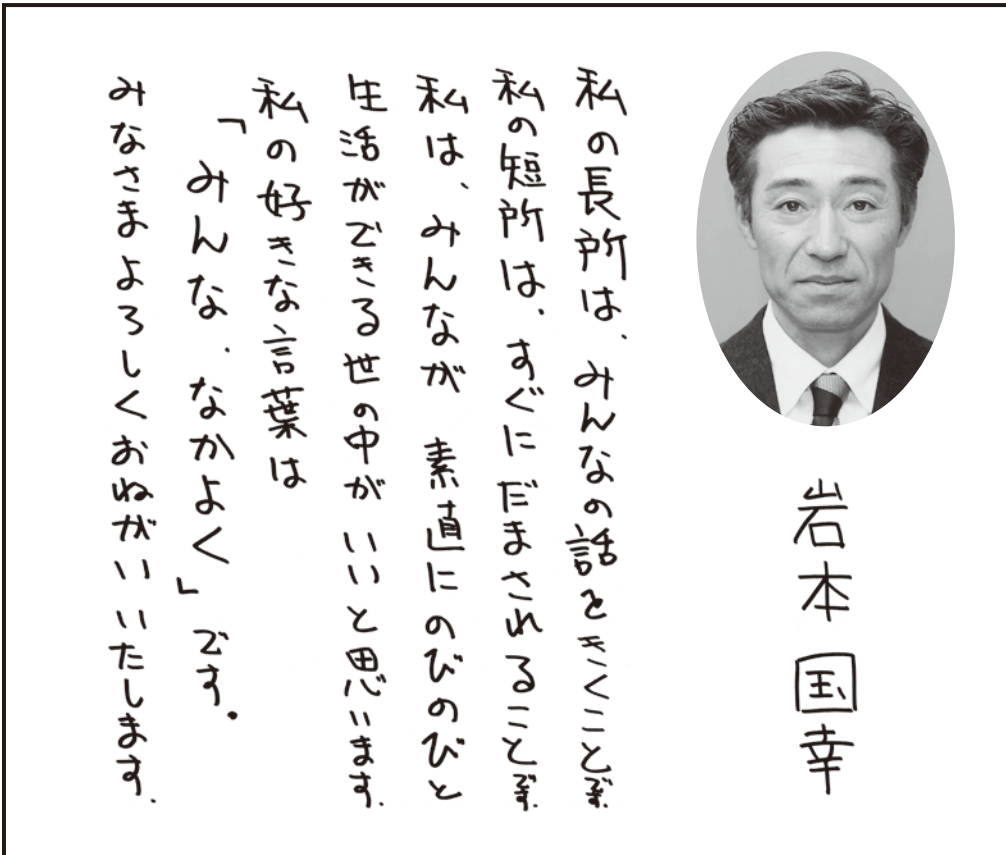 岩本国幸
私の長所は、みんなの話をきくことです。
私の短所は、すぐにだまされることです。
私は、みんなが 素直にのびのびと
生活ができる世の中が いいと思います。
私の好きな言葉は
「みんな、なかよく」です。
みなさまよろしくおねがいいたします。